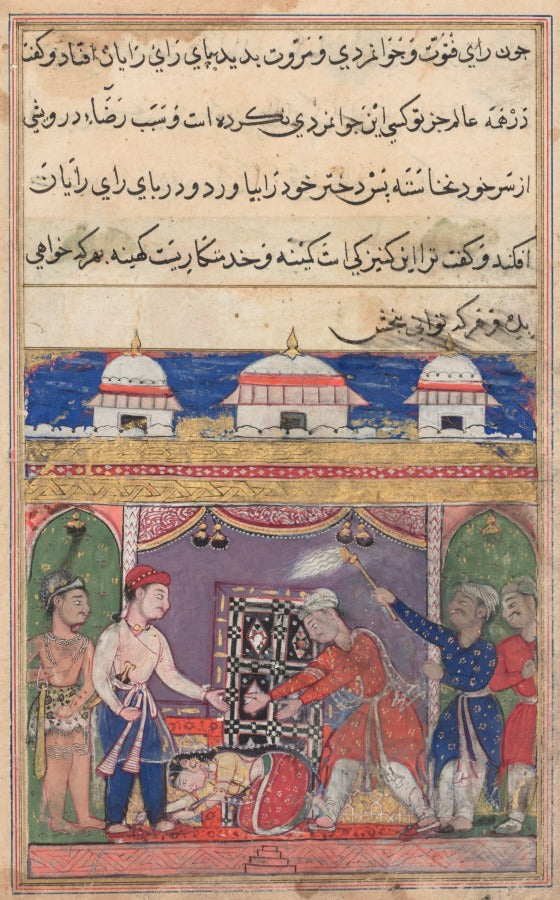 چون رای فتوّت و جوانمردی و مروّت بدید بپای رای رایان افتاد و کفت
در همه عالم جز تو کسی این جوانمردی نکرده است و سبب رضاء درویشی
از سر خود نخاسته پس دختر خود را بیاورد و در پای رای رایان
افکند و کفت ترا این کنیزکی است کمینه و خدمتکاریست کهینه بهر که خواهی
بده و هر که توانی بخش